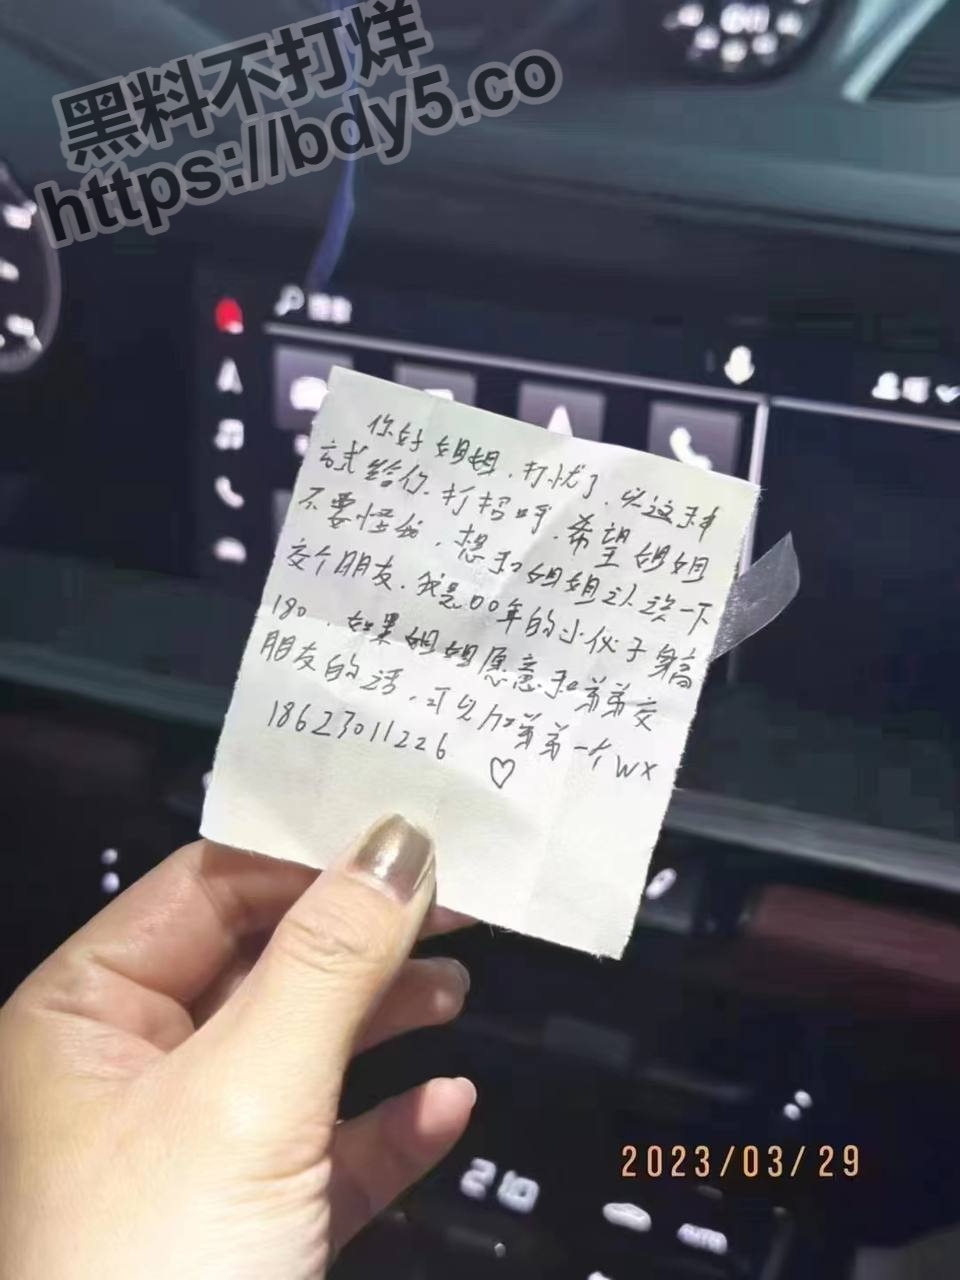 黑料不打烊
https://bdy5.co
你好姐姐，打扰了，以这种
方式给你打招呼，希望姐姐
不要怪我，想和姐姐认识一下
交个朋友，我是00年的小伙子身高
180，如果姐姐愿意和弟弟交
朋友的话，可以加弟弟一个WX
18623011226 ♡
210
AUTO
2023/03/29